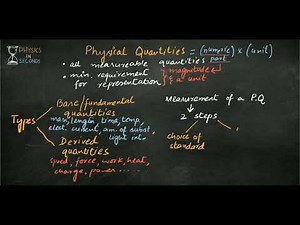 PHYSICS
IN
SECONDS
Physical Quantities = (numeric part) × (unit)
• all measureable quantities
• min. requirement for representation } magnitude & a unit
Types
Base/fundamental quantities
mass, length, time, temp,
elect. current, am. of subst.
light int.
Derived quantities
speed, force, work, heat,
charge, power.....
Measurement of a P.Q
2 steps
choice of
standard